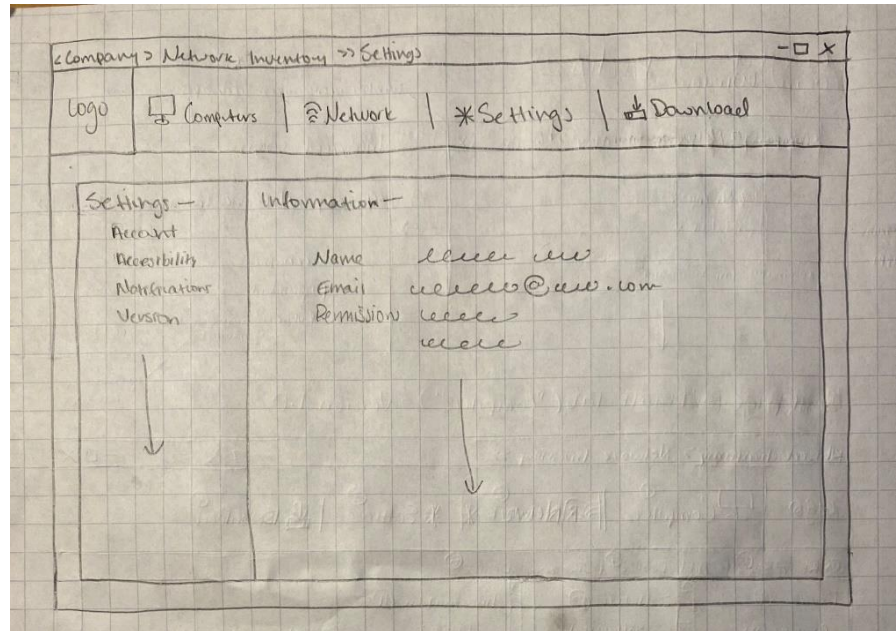 <Company> Network Inventory >> Settings
Logo
Computers | Network | *Settings | Download
Settings -
Account
Accessibility
Notifications
Version
Information -
Name
Email @ .com
Permission